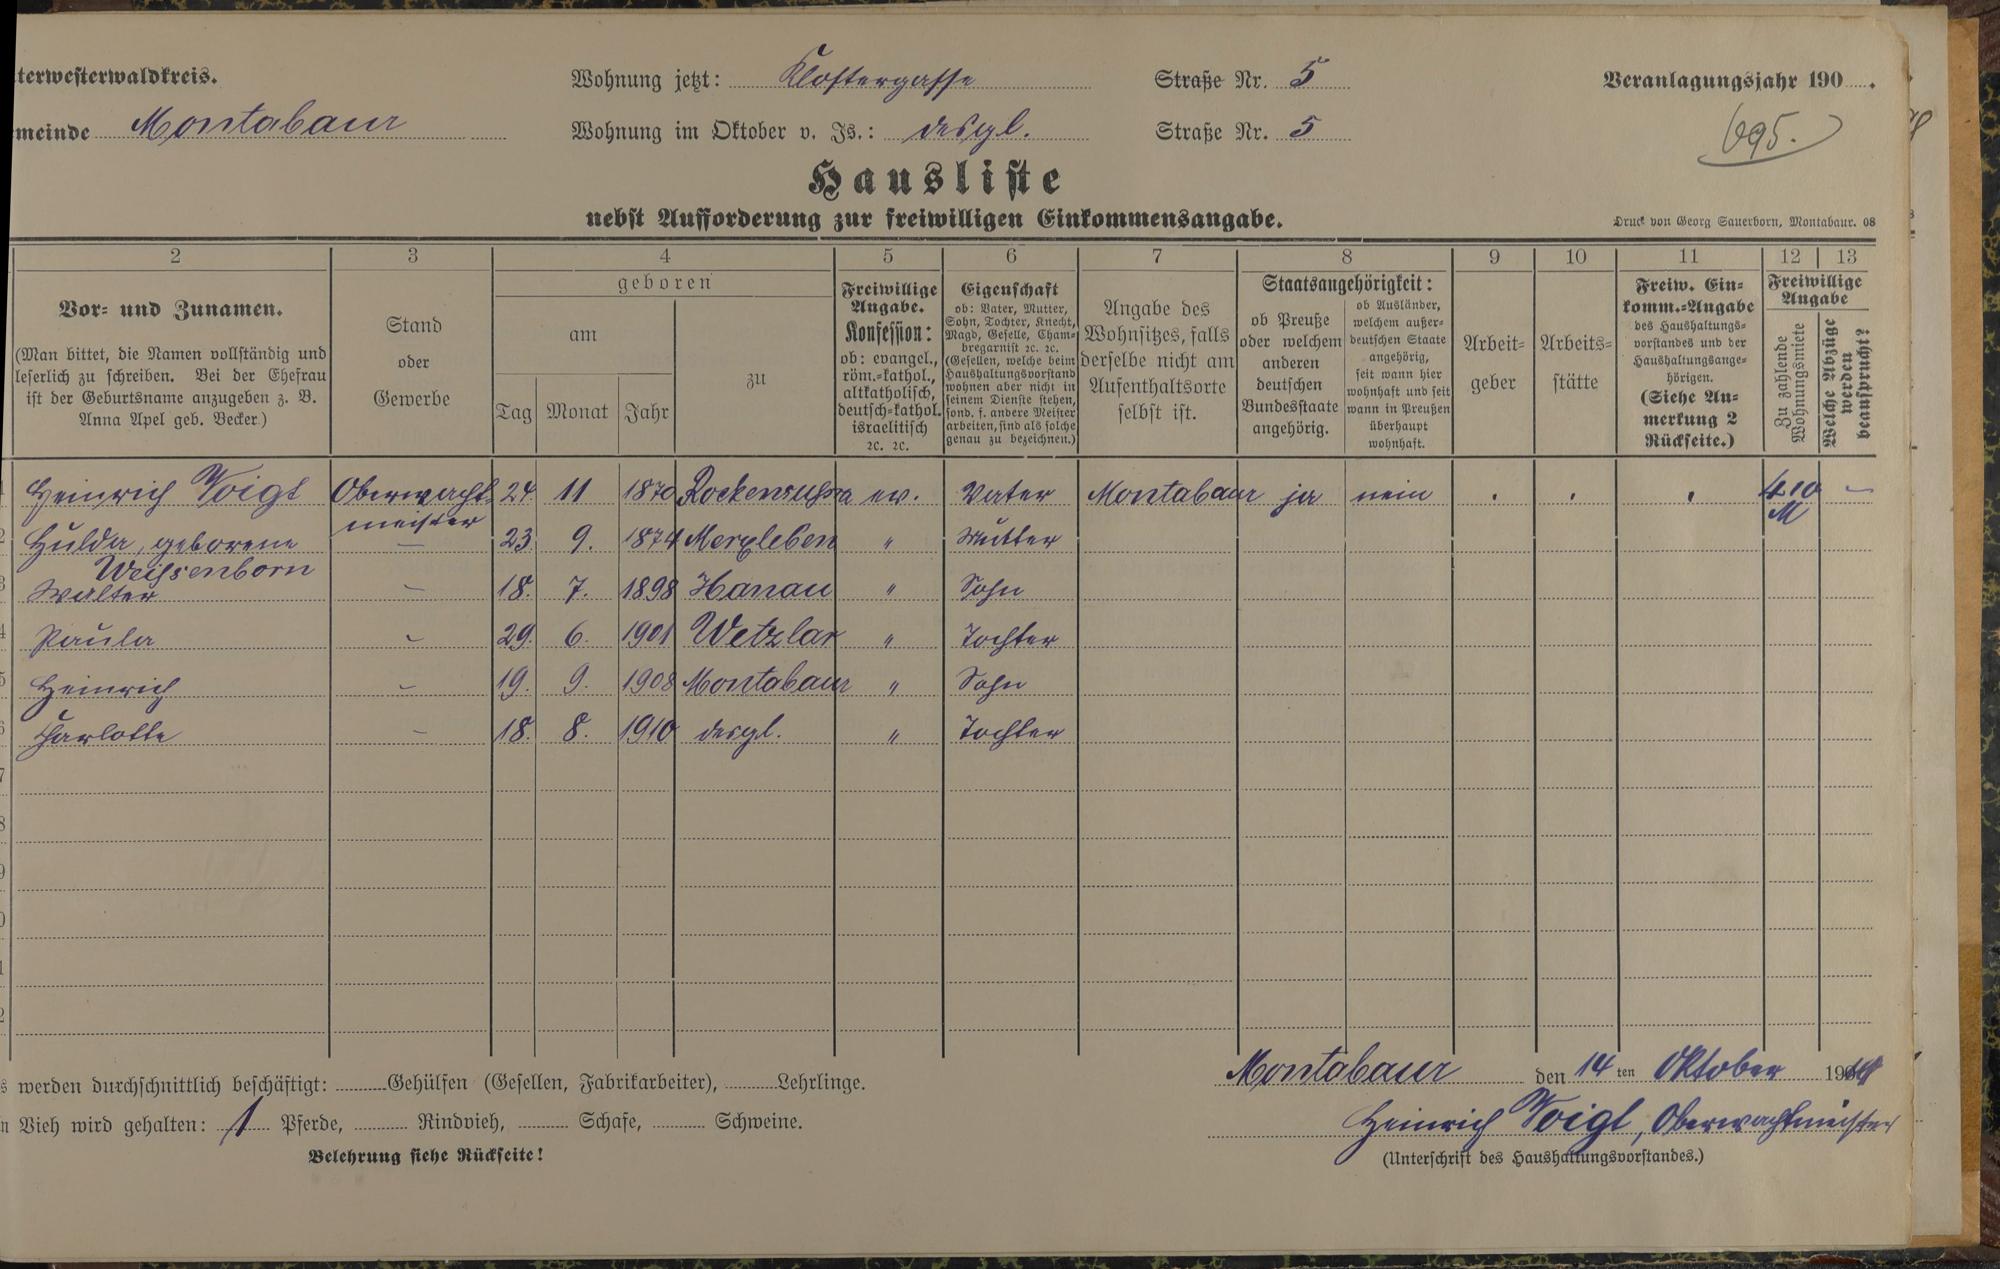 terwesterwaldkreis.
Wohnung jetzt: Klostergasse Straße Nr. 5
Veranlagungsjahr 190 .
meinde Montabaur
Wohnung im Oktober v. Js.: desgl. Straße Nr. 5
695.
Hausliste
nebst Aufforderung zur freiwilligen Einkommensangabe.
Druck von Georg Sauerborn, Montabaur. 08
2 3 4 5 6 7 8 9 10 11 12 13
Vor- und Zunamen.
(Man bittet, die Namen vollständig und
leserlich zu schreiben. Bei der Ehefrau
ist der Geburtsname anzugeben z. B.
Anna Apel geb. Becker.)
Stand
oder
Gewerbe
geboren
am
zu
Tag Monat Jahr
Freiwillige
Angabe.
Konfession:
ob: evangel.,
röm.-kathol.,
altkatholisch,
deutsch-kathol.
israelitisch
ꝛc. ꝛc.
Eigenschaft
ob: Vater, Mutter,
Sohn, Tochter, Knecht,
Magd, Geselle, Cham-
bregarnist ꝛc. ꝛc.
(Gesellen, welche beim
Haushaltungsvorstand
wohnen aber nicht in
seinem Dienste stehen,
sond. f. andere Meister
arbeiten, sind als solche
genau zu bezeichnen.)
Angabe des
Wohnsitzes, falls
derselbe nicht am
Aufenthaltsorte
selbst ist.
Staatsangehörigkeit:
ob Preuße
oder welchem
anderen
deutschen
Bundesstaate
angehörig.
ob Ausländer,
welchem außer-
deutschen Staate
angehörig,
seit wann hier
wohnhaft und seit
wann in Preußen
überhaupt
wohnhaft.
Arbeit-
geber
Arbeits-
stätte
Freiw. Ein-
komm.-Angabe
des Haushaltungs-
vorstandes und der
Haushaltungsange-
hörigen.
(Siehe An-
merkung 2
Rückseite.)
Freiwillige
Angabe
Zu zahlende
Wohnungsmiete
Welche Abzüge
werden
beansprucht?
Heinrich Voigt Oberwacht- 24. 11 1870 Rockensußra ev. Vater Montabaur ja nein . . . 410 –
meister M
2 Hulda, geborene – 23. 9. 1874 Merxleben " Mutter
Weißenborn
3 Walter – 18. 7. 1898 Hanau " Sohn
4 Paula – 29. 6. 1901 Wetzlar " Tochter
5 Heinrich – 19. 9. 1908 Montabaur " Sohn
6 Charlotte – 18. 8. 1910 desgl. " Tochter
7
8
9
0
1
2
s werden durchschnittlich beschäftigt: Gehülfen (Gesellen, Fabrikarbeiter), Lehrlinge.
Montabaur den 14 ten Oktober
n Vieh wird gehalten: 1 Pferde, Rindvieh, Schafe, Schweine.
Heinrich Voigt, Oberwachtmeister
Belehrung siehe Rückseite!
(Unterschrift des Haushaltungsvorstandes.)